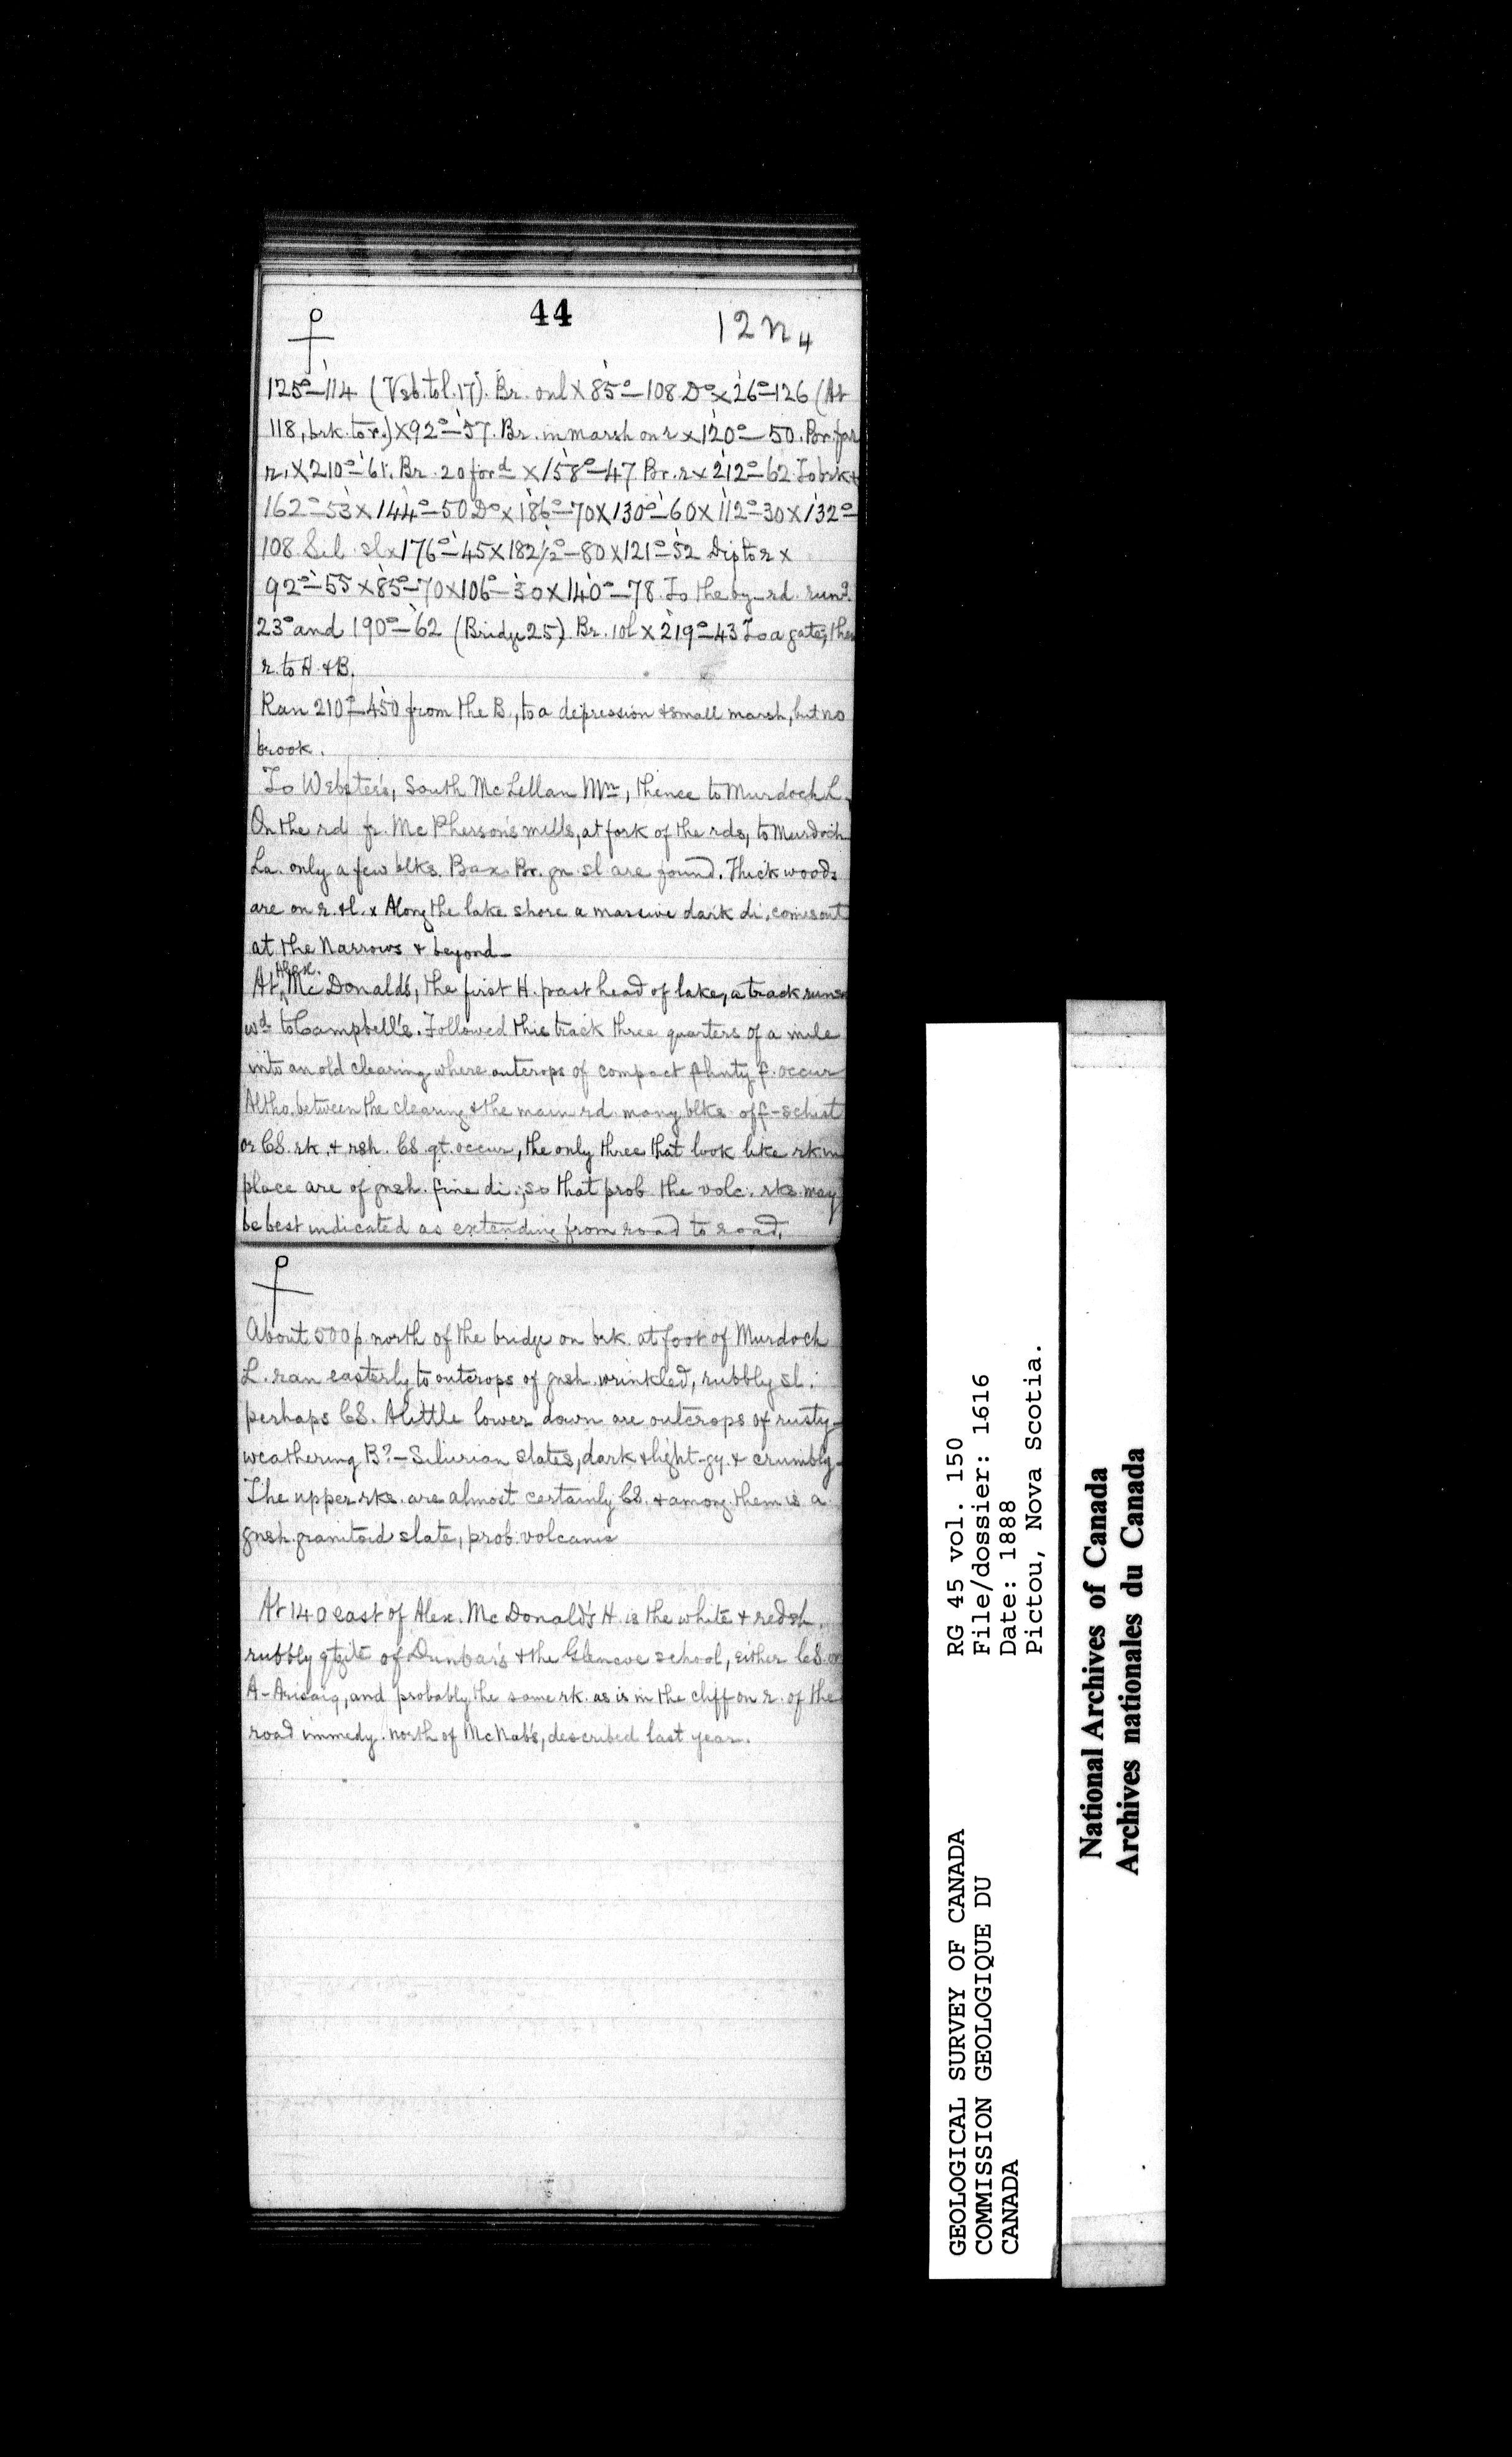 44
12 N 4
125°–114 (Vsb. to l. 17). Br. on l x 85°–108 D° x 26°–126 (At
118, brk. to r.) x 92°–57. Br. in marsh on r x 120°–50. Br. far
r. x 210°–61. Br. 20 for.d x 158°–47 Br. r x 212°–62 To brk +
162°–53 x 144°–50 D° x 186°–70 x 130°–60 x 112°–30 x 132°–
108 Sil. sl x 176°–45 x 182½°–80 x 121°–52 Dip to r x
92°–55 x 85°–70 x 106°–30 x 140°–78. To the by-rd. run.g
23° and 190°–62 (Bridge 25). Br. 10 l x 219°–43 To a gate, then
r. to H. + B.
Ran 210°–450 from the B., to a depression + small marsh, but no
brook.
To Webster's, South McLellan Mn, thence to Murdoch L.
On the rd fr. McPherson's mills, at fork of the rds, to Murdoch
La. only a few blks. Bax Br. gn. sl are found. Thick woods
are on r. + l. x Along the lake shore a massive dark di. comes out
at the Narrows + beyond –
At Alex. McDonald's, the first H. past head of lake, a track runs
wd. to Campbell's. Followed this track three quarters of a mile
into an old clearing where outcrops of compact flinty f. occur
Altho. between the clearing + the main rd. many blks of f-schist
or CS. rk. + rsh. CS. qt. occur, the only three that look like rk in
place are of gnsh. fine di.; so that prob. the volc. rks. may
be best indicated as extending from road to road.
About 500 p. north of the bridge on brk. at foot of Murdoch
L. ran easterly to outcrops of gnsh. wrinkled, rubbly sl.
perhaps CS. A little lower down are outcrops of rusty-
weathering B?–Silurian slates, dark + light-gy. + crumbly.
The upper rks. are almost certainly CS. + among them is a
gnsh. granitoid slate, prob. volcanic
At 140 east of Alex. McDonald's H. is the white + redsh.
rubbly qtzite of Dunbar's + the Glencoe school, either CS. or
A-Arisaig, and probably the same rk. as is in the cliff on r. of the
road immedy. north of McNab's, described last year.
GEOLOGICAL SURVEY OF CANADA
COMMISSION GEOLOGIQUE DU
CANADA
RG 45 vol. 150
File/dossier: 1616
Date: 1888
Pictou, Nova Scotia.
National Archives of Canada
Archives nationales du Canada